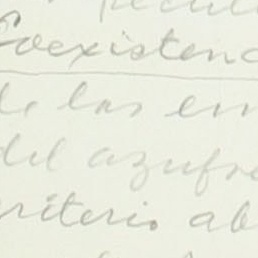 Coexistenc
de las em
del azufre
criterio. ab